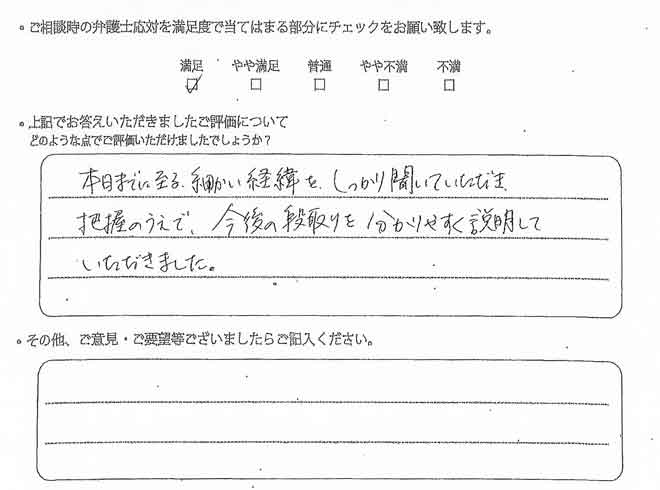 。ご相談時の弁護士応対を満足度で当てはまる部分にチェックをお願い致します。
満足 やや満足 普通 やや不満 不満
☑ □ □ □ □
。上記でお答えいただきましたご評価について
どのような点でご評価いただけましたでしょうか?
本日までに至る、細かい経緯を、しっかり聞いていただき、
把握のうえで、今後の段取りを分かりやすく説明して
いただきました。
。その他、ご意見・ご要望等ございましたらご記入ください。